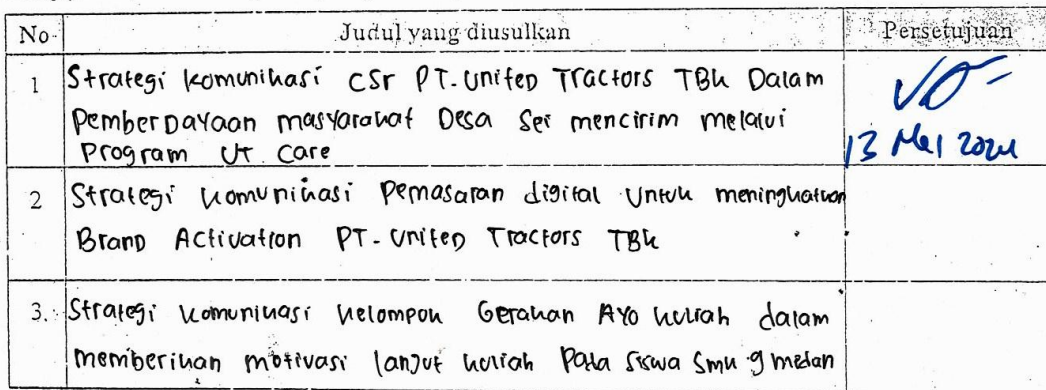 No Judul yang diusulkan Persetujuan
1 Strategi Komunikasi CSr PT. United Tractors TBk Dalam
Pemberdayaan masyarakat Desa Sei mencirim melalui
Program UT Care
13 Mei 2024
2 Strategi Komunikasi Pemasaran digital Untuk meningkatkan
Brand Activation PT. United Tractors TBk
3. Strategi Komunikasi Kelompok Gerakan AYO Kuliah dalam
memberikan motivasi lanjut kuliah Pada Siswa Smk 9 medan